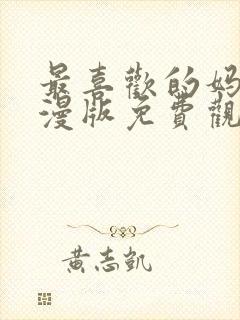 最喜歡的媽
漫版免費觀
黃志凱